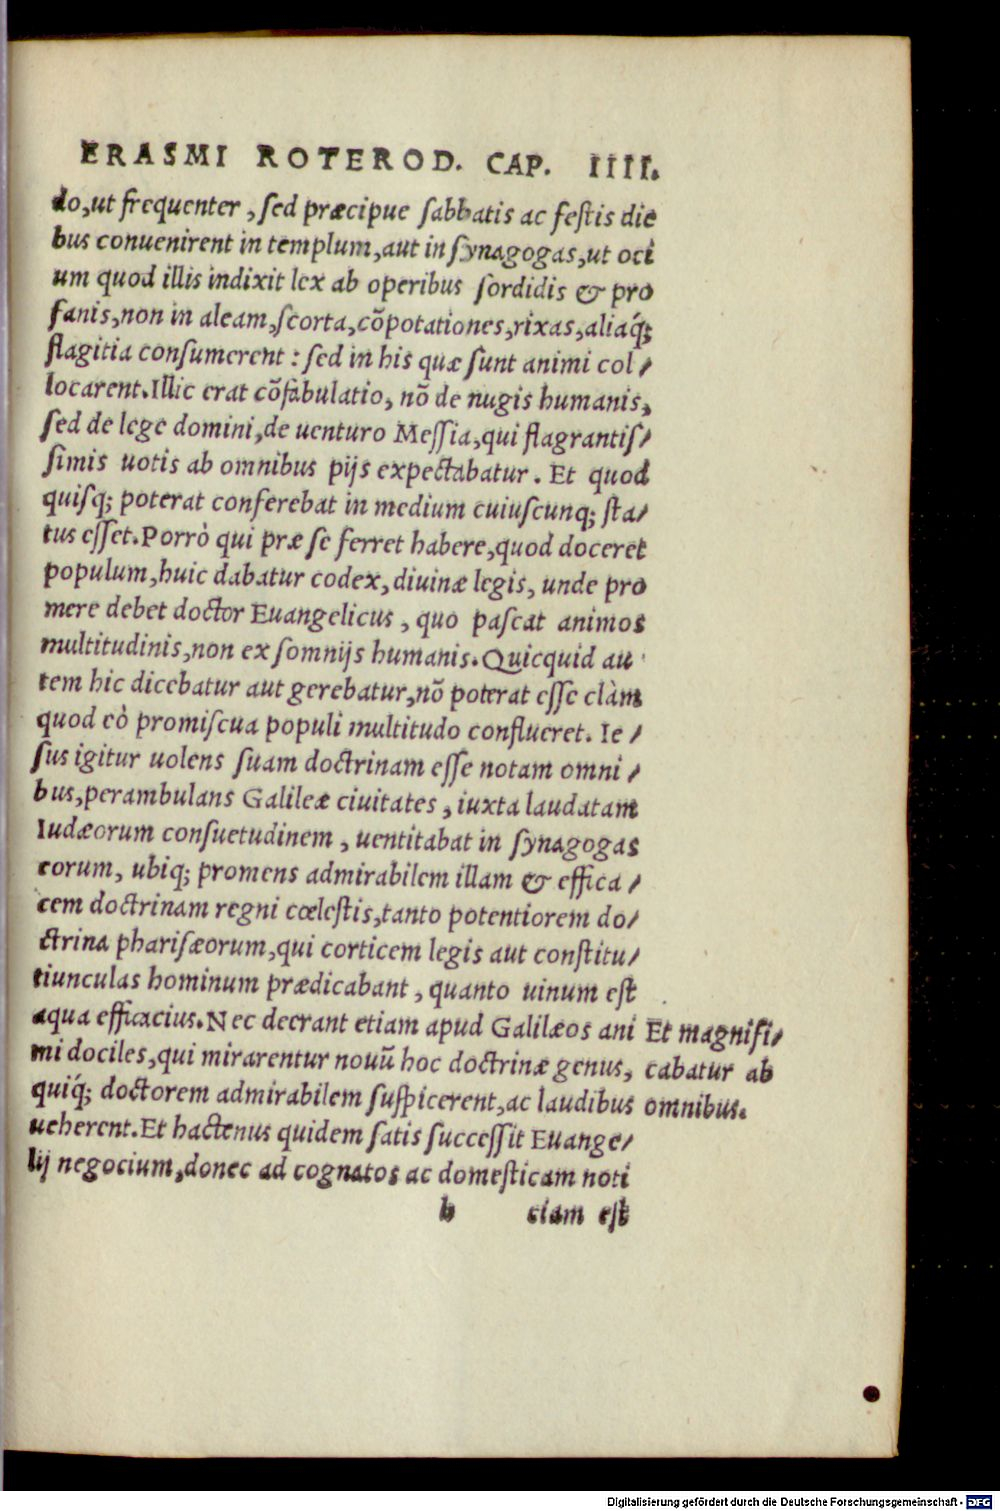 ERASMI ROTEROD. CAP. IIII.
do,ut frequenter, sed præcipue sabbatis ac festis die
bus conuenirent in templum,aut in synagogas,ut oci
um quod illis indixit lex ab operibus sordidis & pro
fanis,non in aleam,scorta,cõpotationes,rixas,aliaq́;
flagitia consumerent: sed in his quæ sunt animi col/
locarent.Illic erat cõfabulatio, nõ de nugis humanis,
sed de lege domini,de uenturo Messia,qui flagrantis/
simis uotis ab omnibus pijs expectabatur. Et quod
quisq; poterat conferebat in medium cuiuscunq; sta/
tus esset.Porrò qui præ se ferret habere,quod doceret
populum,huic dabatur codex, diuinæ legis, unde pro
mere debet doctor Euangelicus, quo pascat animos
multitudinis,non ex somnijs humanis.Quicquid au
tem hic dicebatur aut gerebatur,nõ poterat esse clàm
quod eò promiscua populi multitudo conflueret. Ie/
sus igitur uolens suam doctrinam esse notam omni/
bus,perambulans Galileæ ciuitates, iuxta laudatam
Iudæorum consuetudinem, uentitabat in synagogas
eorum, ubiq; promens admirabilem illam & effica/
cem doctrinam regni cœlestis,tanto potentiorem do/
ctrina pharisæorum,qui corticem legis aut constitu/
tiunculas hominum prædicabant, quanto uinum est
aqua efficacius.Nec deerant etiam apud Galilæos ani
mi dociles,qui mirarentur nouũ hoc doctrinæ genus,
quiq́; doctorem admirabilem suspicerent,ac laudibus
ueherent.Et hactenus quidem satis successit Euange/
lij negocium,donec ad cognatos ac domesticam noti
Et magnifi/
cabatur ab
omnibus.
b ciam est
Digitalisierung gefördert durch die Deutsche Forschungsgemeinschaft - DFG